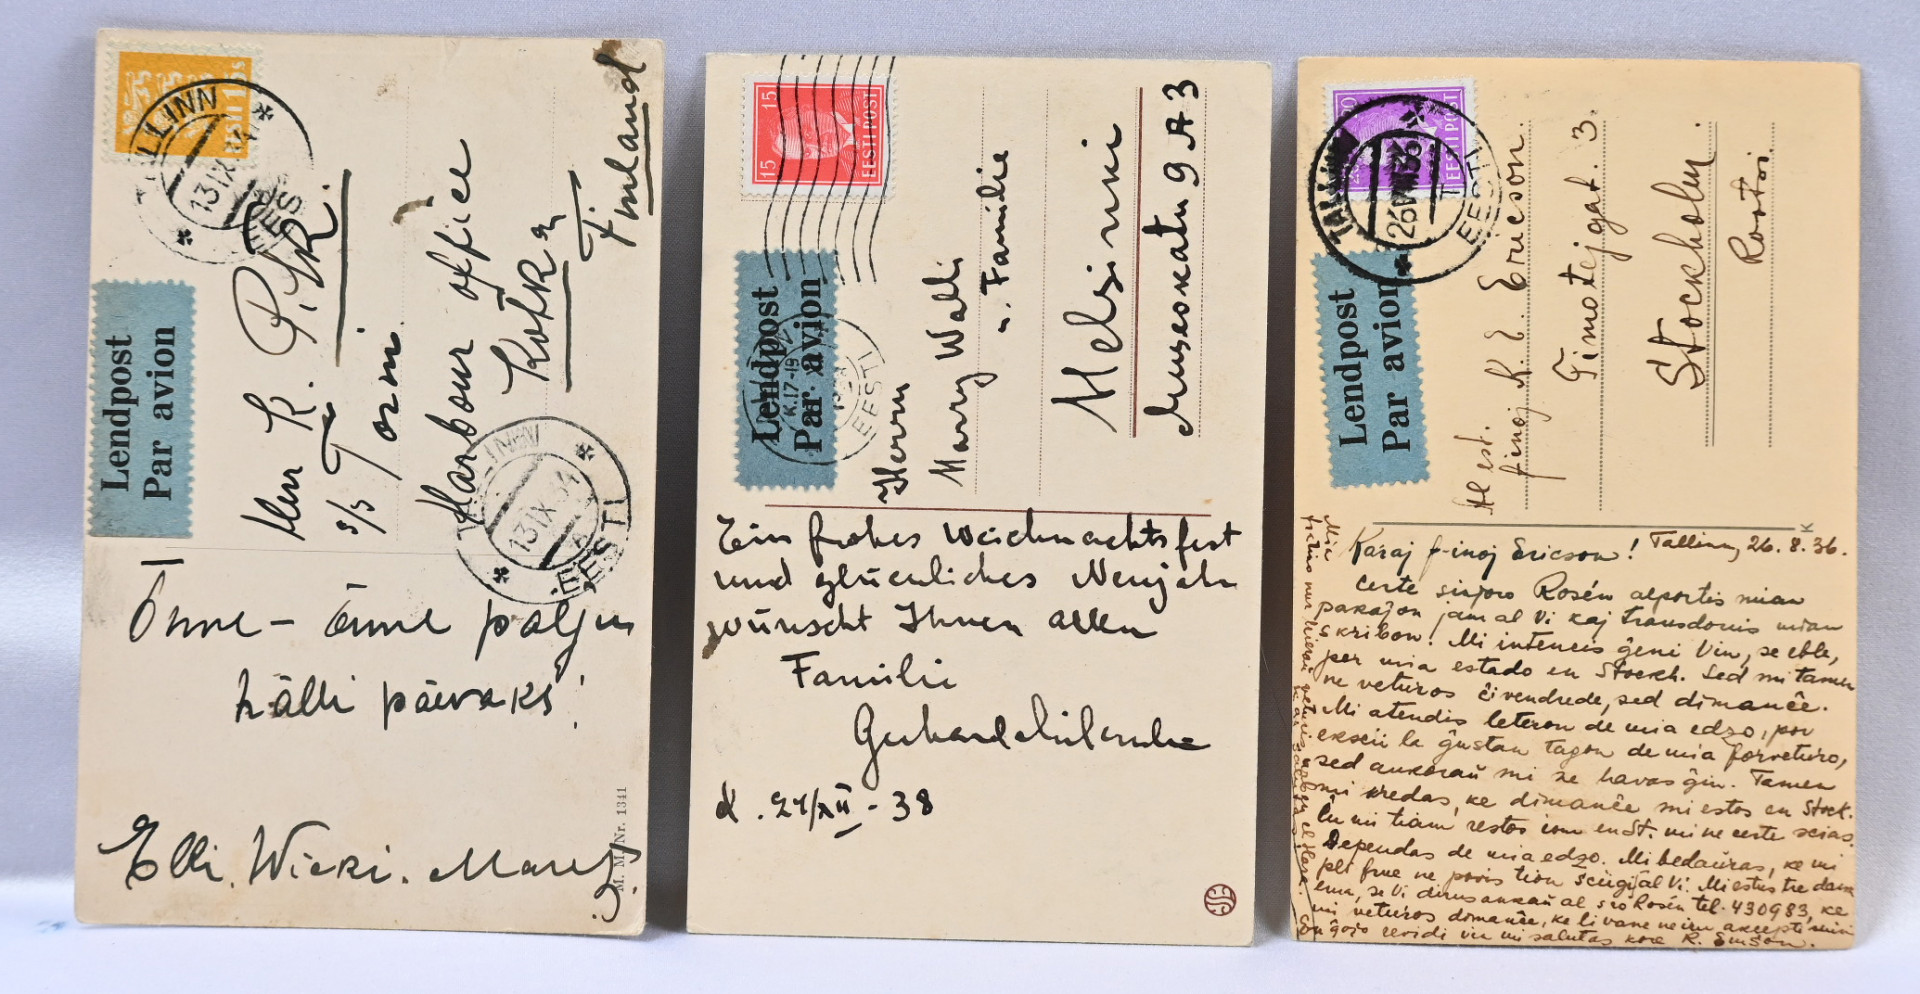 EESTI
TALLINN
13 IX 34
EESTI
Lendpost
Par avion
Herr K. P.
s/s Tormi
Harbour office
Kotka
Finland
TALLINN
13 IX 34
EESTI
Õnne - õnne palju
källi päevaks!
Elli. Wiera. Mare
M. M. Nr. 1341
15 15
EESTI POST
Lendpost
Par avion
K.17-18
EESTI
Herrn
Harry Walli
u. Familie
Helsinki
Museokatu 9 A 3
Ein frohes Weichnachtsfest
und glückliches Neujahr
wünscht Ihnen allen
Familie
d. 21/XII - 38
20
EESTI POST
TALLINN
26 VIII 36
EESTI
Lendpost
Par avion
Al est.
finoj K. E. Ericson.
Timotejgat. 3.
Stockholm.
Rootsi.
K
Karaj f-inoj Ericson! Tallinn, 26. 8. 36.
Certe sinjoro Rosén alportis mian
pakaĵon jam al Vi kaj transdonis mian
skribon! Mi intencis ĝeni Vin, se eble,
per mia estado en Stockh. Sed mi tamen
ne veturos ĉivendrede, sed dimanĉe.
Mi atendis leteron de mia edzo, por
ekscii la ĝustan tagon de mia forveturo,
sed ankoraŭ mi ne havas ĝin. Tamen
mi kredas, ke dimanĉe mi estos en Stock.
Ĉu mi tiam restos iom en St. mi ne certe scias.
Dependas de mia edzo. Mi bedaŭras, ke mi
pli frue ne povis tion sciigi al Vi. Mi estus tre dank
ema, se Vi dirus ankaŭ al s-ro Rosén tel. 430983, ke
mi veturos dimanĉe, ke li vane ne iru akcepti min
Ĝis ĝoja revido vin mi salutas kore
Mia